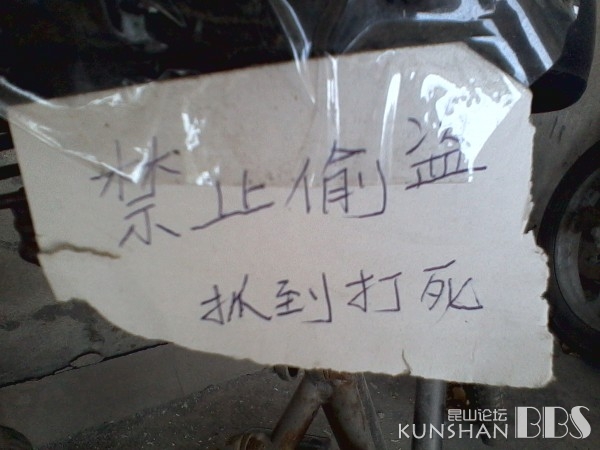 禁止偷盗
抓到打死
昆山论坛
KUNSHAN BBS